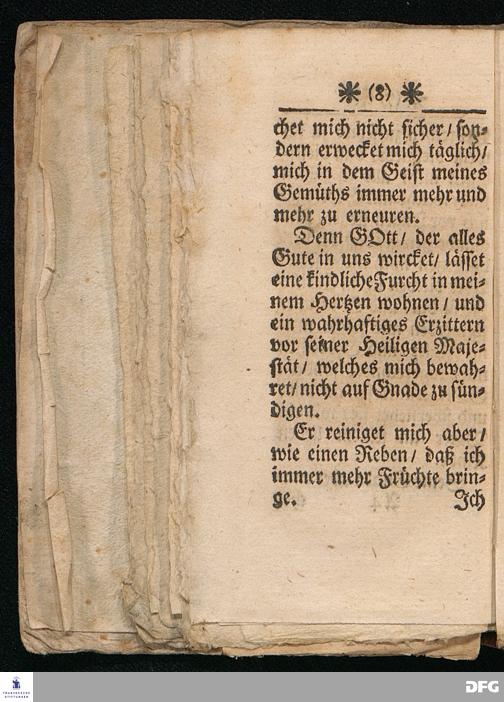 * (8) *
chet mich nicht sicher / son-
dern erwecket mich täglich /
mich in dem Geist meines
Gemüths immer mehr und
mehr zu erneuren.
Denn GOtt / der alles
Gute in uns wircket / lässet
eine kindliche Furcht in mei-
nem Hertzen wohnen / und
ein wahrhaftiges Erzittern
vor seiner Heiligen Maje-
stät / welches mich bewah-
ret / nicht auf Gnade zu sün-
digen.
Er reiniget mich aber /
wie einen Reben / daß ich
immer mehr Früchte brin-
ge. Ich
FRANCKESCHE
STIFTUNGEN
DFG